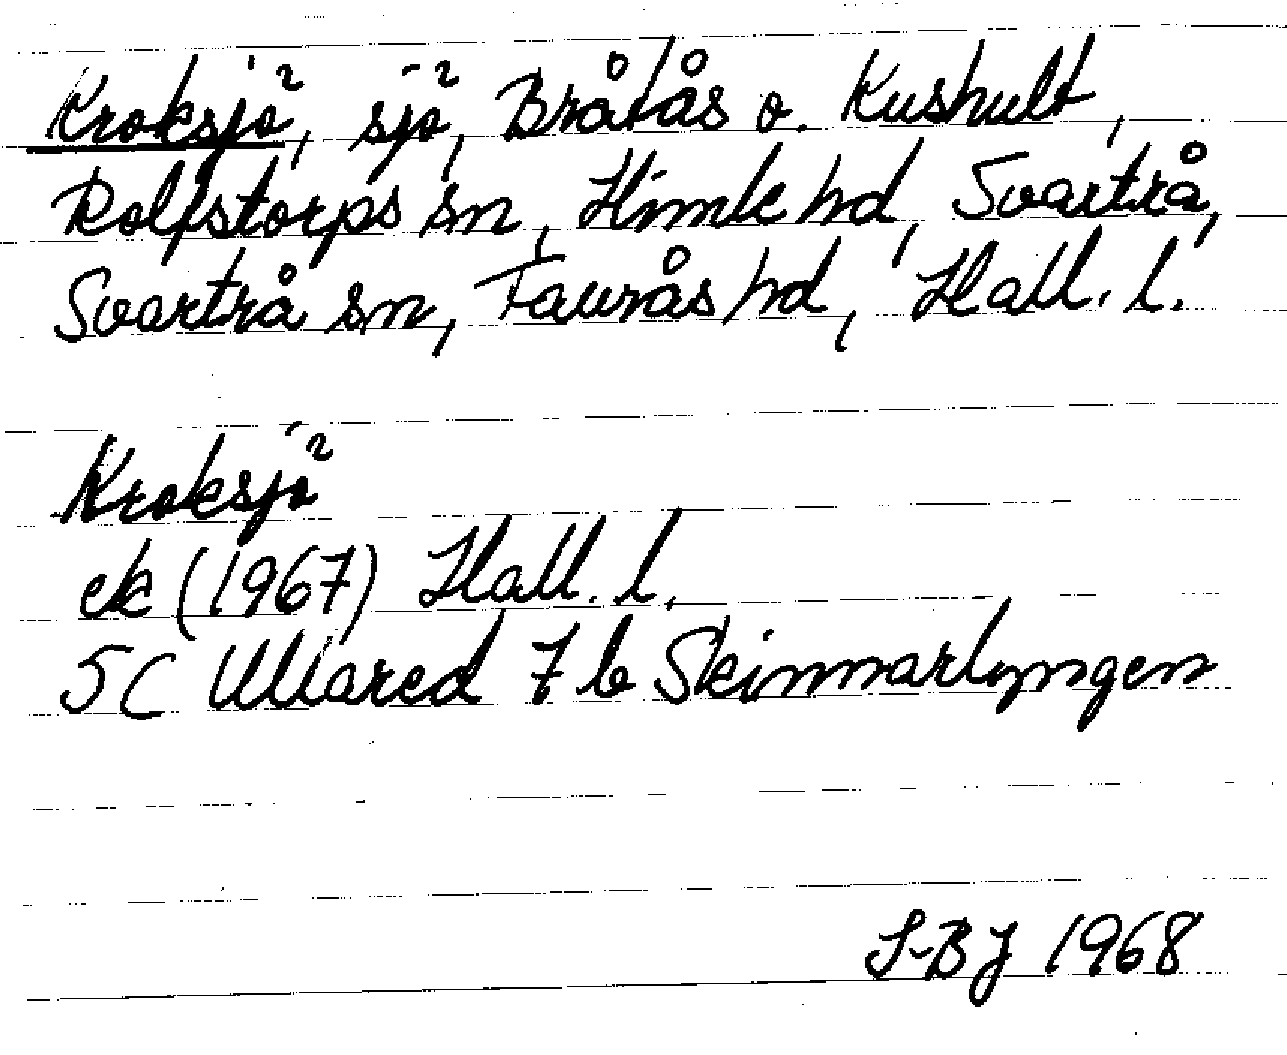 Kroksjö, sjö, Bråtås o. Kushult,
Rolfstorps sn, Himle hd, Svartrå,
Svartrå sn, Faurås hd, Hall. l.
Kroksjö
ek (1967) Hall. l.
5C Ullared 7b Skinnarlyngen
S-BJ 1968